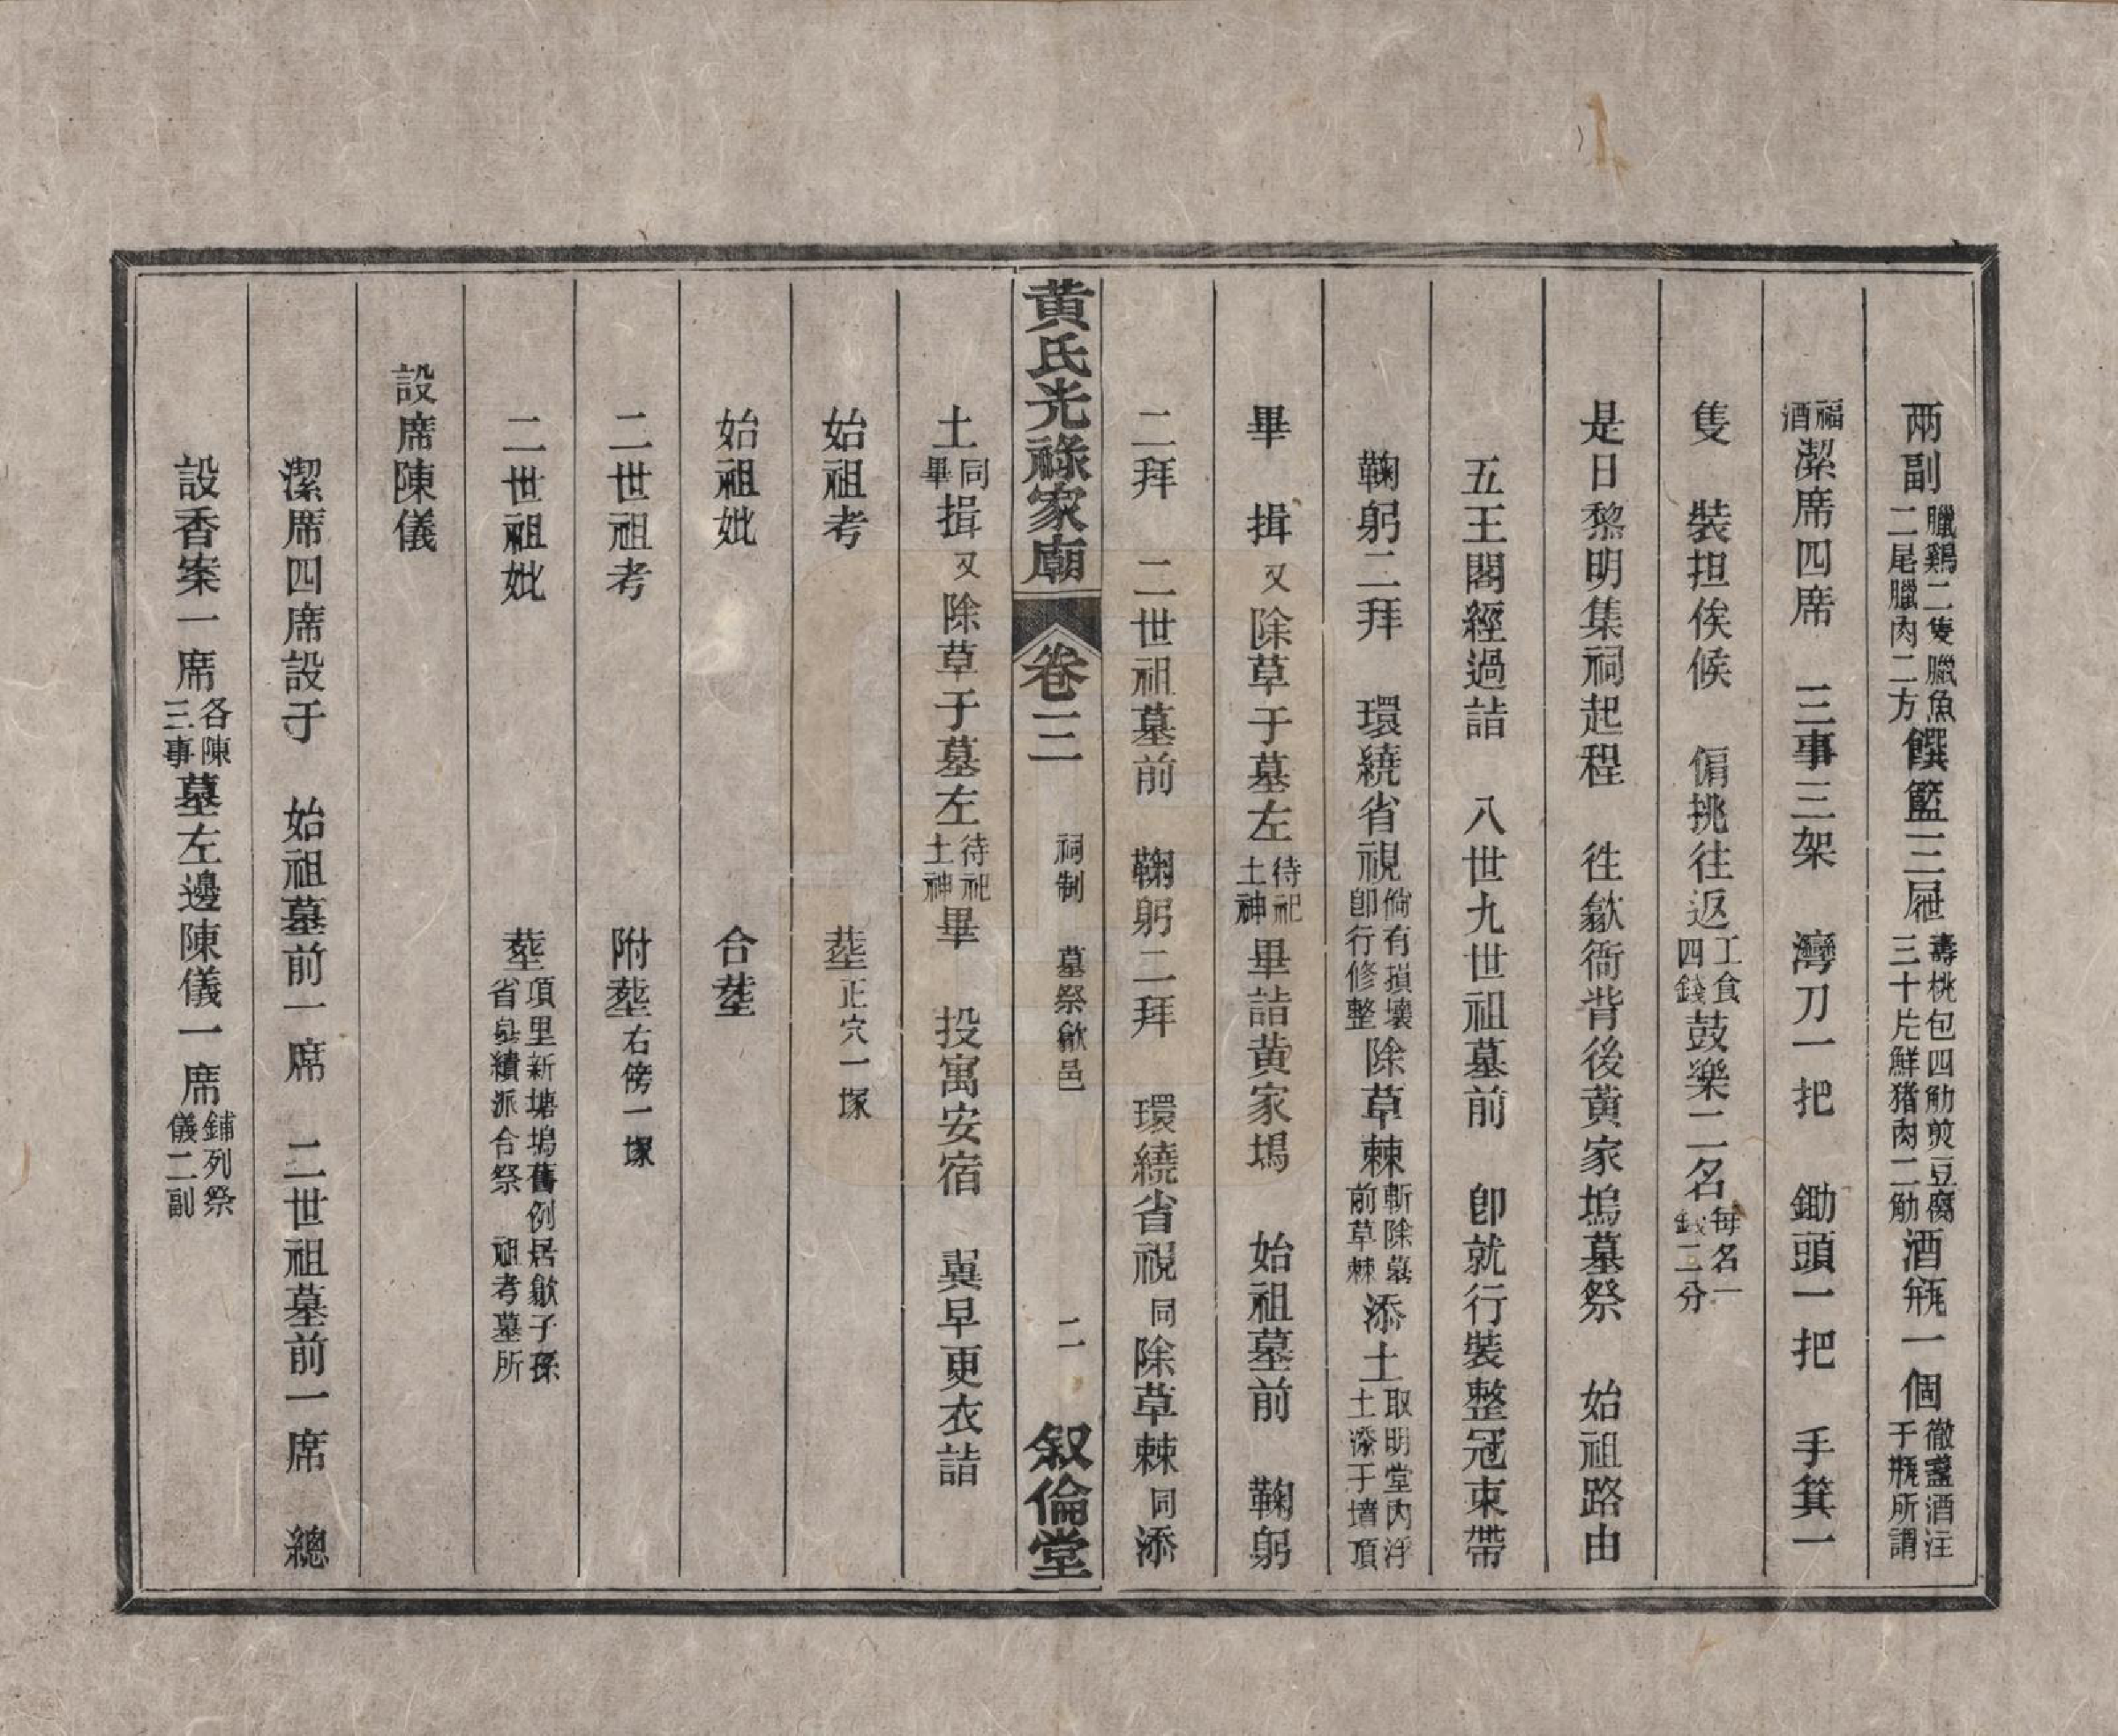 兩副臘鷄二隻臘魚二尾臘肉二方饌籃三屜壽桃包四觔煎豆腐三十片鮮猪肉二觔酒瓶一個徹盞酒注于瓶所謂
福酒潔席四席　三事三架　灣刀一把　鋤頭一把　手箕一
隻　裝担俟候　僱挑往返工食四錢鼓樂二名每名一錢二分
是日黎明集祠起程　徃歙衙背後黄家塢墓祭　始祖路由
五王閣經過詣　八世九世祖墓前　卽就行裝整冠束帶
鞠躬二拜　環繞省視倘有損壞卽行修整除草棘斬除墓前草棘添土取明堂內浮土添于墳頂
畢　揖又除草于墓左待祀土神畢詣黄家塢　始祖墓前　鞠躬
二拜　二世祖墓前　鞠躬二拜　環繞省視同除草棘同添
黄氏光祿家廟　卷三　祠制　墓祭歙邑　二　叙倫堂
土同畢揖又除草于墓左待祀土神畢　投寓安宿　異早更衣詣
始祖考　塟正穴一塚
始祖妣　合塟
二世祖考　附塟右傍一塚
二世祖妣　塟項里新塘塢舊例居歙子孫省臬績派合祭　祖考墓所
設席陳儀
潔席四席設于　始祖墓前一席　二世祖墓前一席　總
設香案一席各陳三事墓左邊陳儀一席鋪列祭儀二副